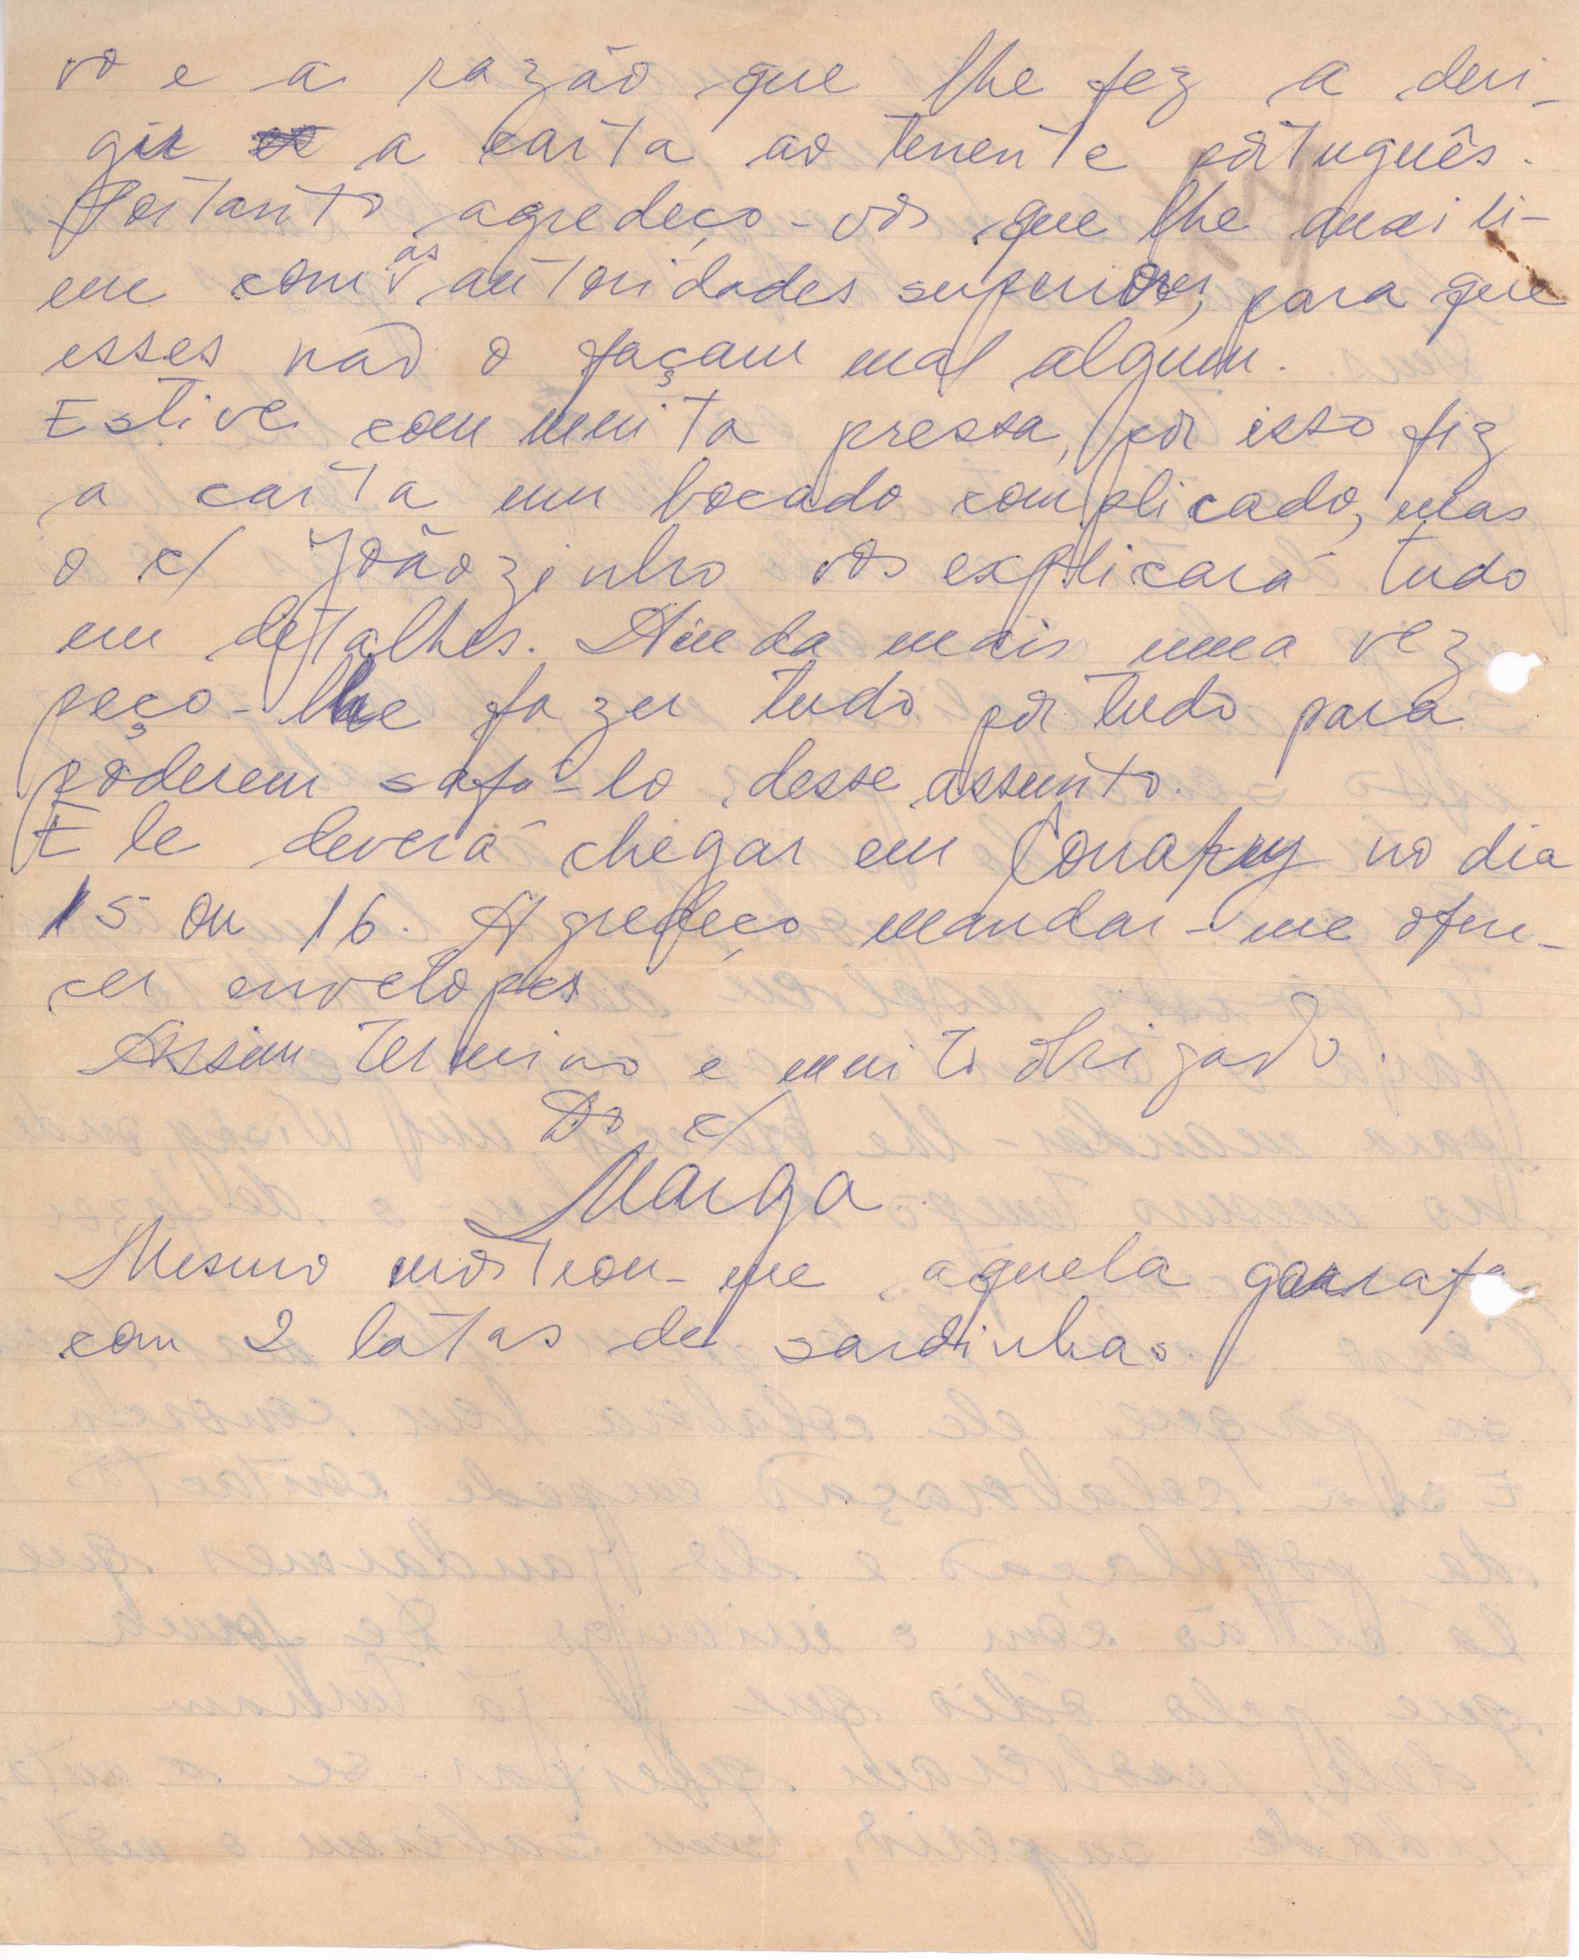 vo e a razão que lhe fez a deri-
gir a carta ao tenente português.
Portanto agredeço-vos que lhe auxili-
em com as autoridades superiores, para que
esses não o façam mal algum.
Estive com muita pressa, por isso fiz
a carta um bocado complicado, mas
o c/ Joãozinho vos explicará tudo
em detalhes. Ainda mais uma vez
peço-lhe fazer tudo por tudo para
poderem safá-lo desse assunto.
Ele deverá chegar em Conakry no dia
15 ou 16. Agredeço mandar-me ofere-
cer envelopes.
Assim termino e muito obrigado.
Do c/
Marga
Mesmo mostrou-me aquela garrafa
com 2 latas de sardinhas.